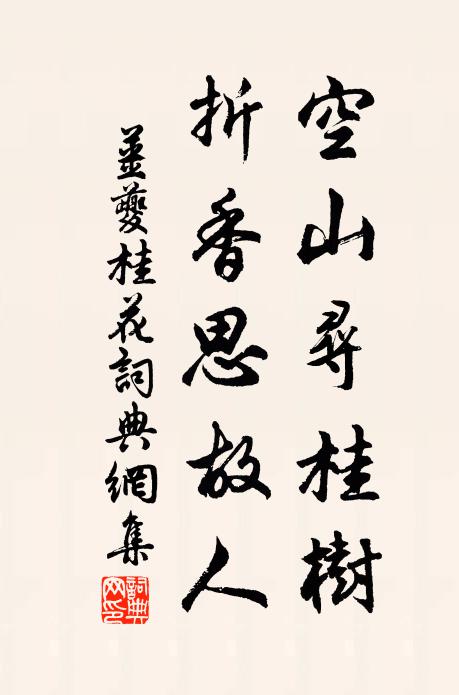 空山尋桂樹
折香思故人
姜夔桂花詞典網集
詞典網印